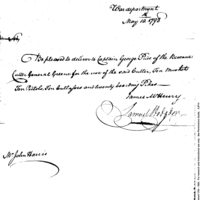 War department
May 10th 1798
Sir,
Be pleased to deliver to Captain George Price of the Revenue
Cutter General Greene for the use of the said Cutter, Ten Muskets
Ten Pistols, Ten Cutlasses and twenty boarding Pikes
James McHenry
Samuel Hodgdon
Mr John Harris